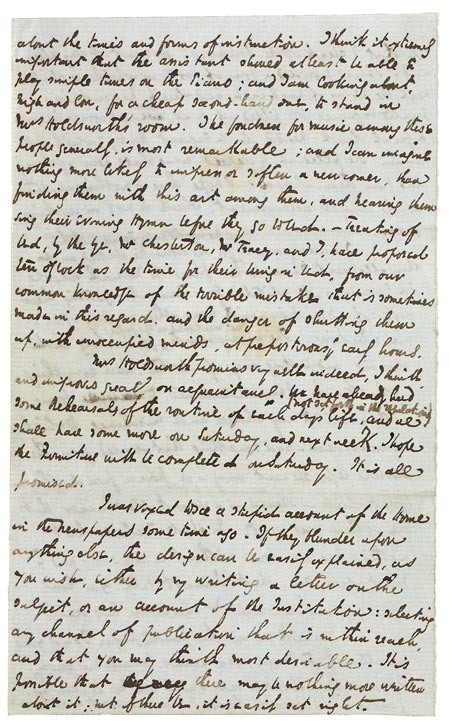 about the times and forms of instruction. I think it extremely
important that the assistant should at least be able to
play simple tunes on the Piano; and I am looking about,
high and low, for a cheap second-hand one, to stand in
Mrs Holdsworth's room. The fondness for music among these
people generally, is most remarkable; and I can imagine
nothing more likely to impress or soften a new comer, than
finding them with this art among them, and hearing them
sing their Evening Hymn before they go to bed. — Treating of
bed, by the bye, Mr Chesterton, Mr Tracey, and I, have proposed
ten o'clock as the time for their being in bed, from our
common knowledge of the terrible mistakes that is sometimes
made in this regard, and the danger of shutting them
up, with unoccupied minds, at preposterously early hours.
Mrs Holdsworth promises very well indeed, I think
and improves greatly on acquaintance. We have already had
some Rehearsals of the routine of each day's life, and we
shall have some more on Saturday, and next week. I hope
the Furniture will be completed on Saturday. It is all
promised.
I was vexed to see a stupid account of the Home
in the newspapers some time ago. If they blunder upon
anything else, the design can be easily explained, as
you wish, either by my writing a letter on the
subject, or an account of the Institution: selecting
any channel of publication that is within reach,
and that you may think most desirable. It is
possible that there may be nothing more written
about it; but if there be, it is easily set right